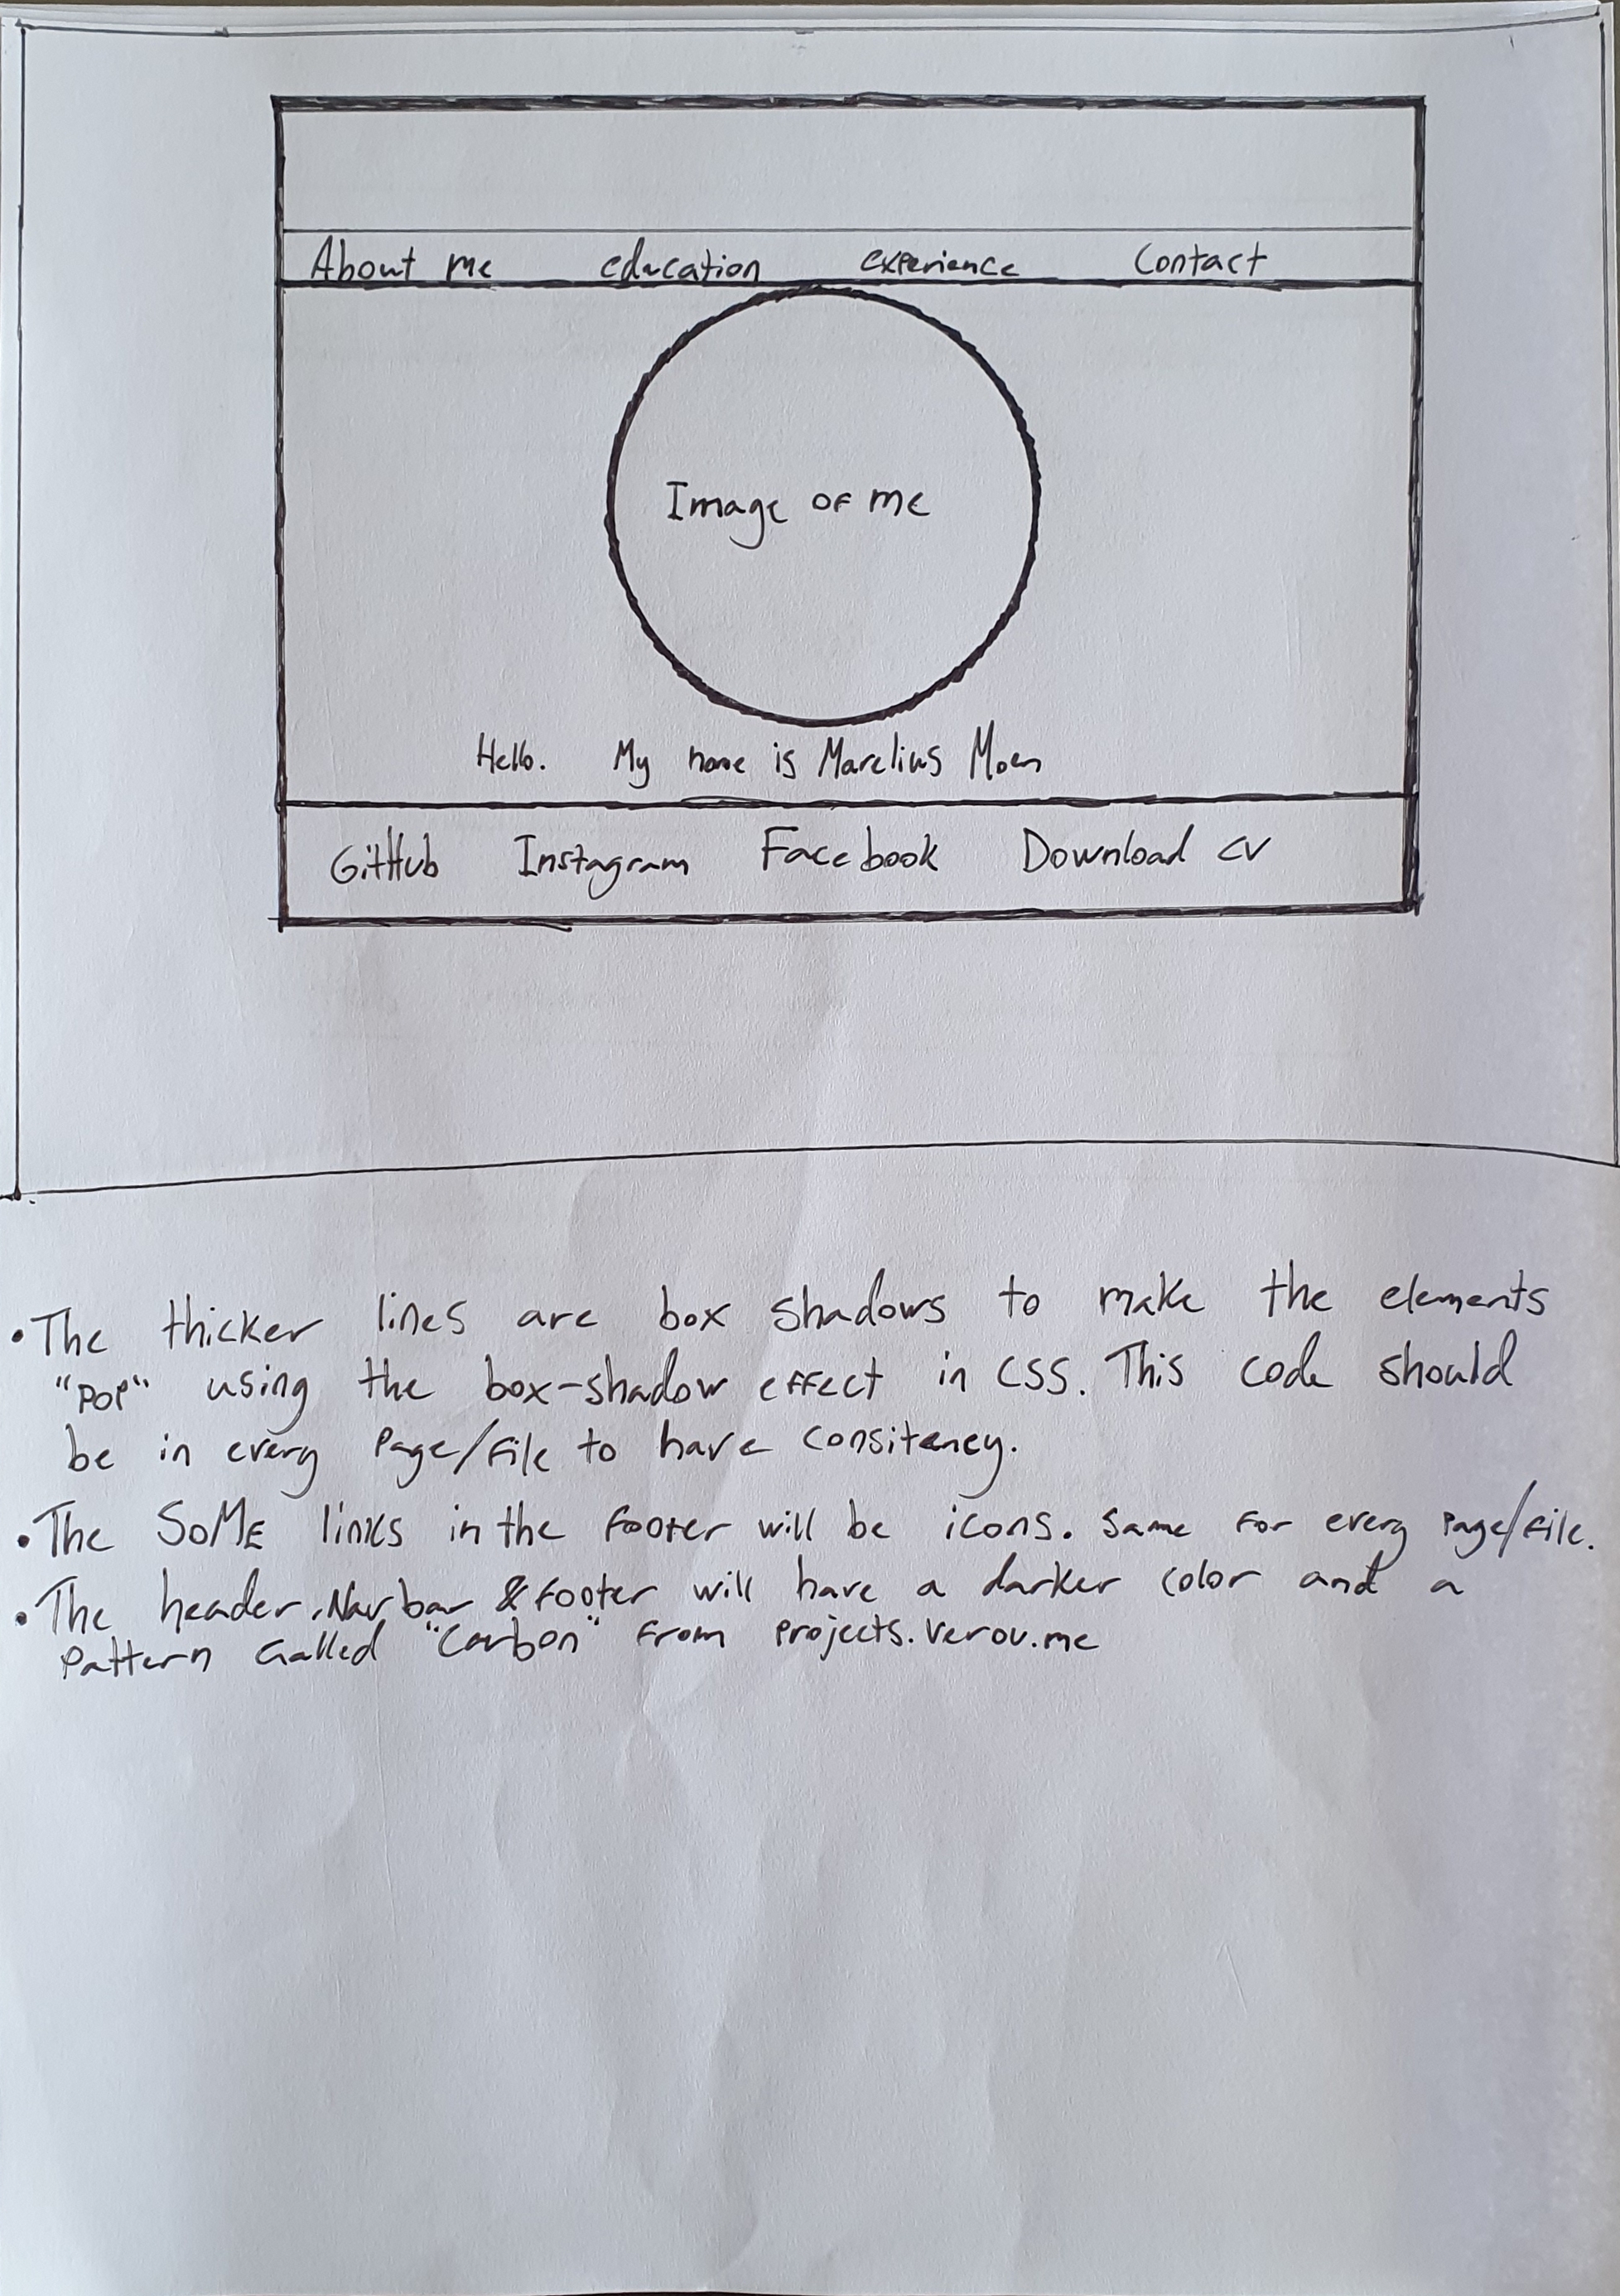 About me education experience Contact
Image of me
Hello. My name is Marelius Moen
GitHub Instagram Facebook Download CV
• The thicker lines are box shadows to make the elements
"POP" using the box-shadow effect in CSS. This code should
be in every Page/file to have consiteney.
• The SoME links in the footer will be icons. Same for every page/file.
• The header, Navbar & footer will have a darker color and a
Pattern called "Carbon" from projects.verou.me